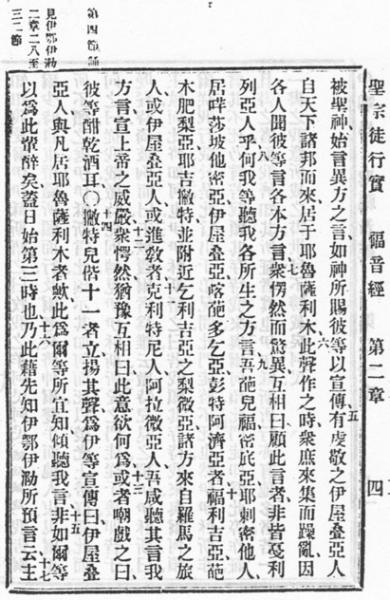 聖宗徒行實 福音經 第二章 四
被聖神始言異方之言如神所賜彼等以宣傳五有虔敬之伊屋叠亞人
自天下諸邦而來居于耶魯薩利木六此聲作之時衆庶來集而躁亂因
各人聞彼等言各本方言七衆愕然而驚異互相曰顧此言者非皆戞利
列亞人乎八何我等聽我各所生之方言九吾葩兒福密庇亞耶刺密他人
居哶莎坡他密亞伊屋叠亞喀葩多乞亞彭特阿濟亞者十福利吉亞葩
木肥梨亞耶吉黴特並附近乞利吉亞之梨微亞諸方來自羅馬之旅
人或伊屋叠亞人或進敎者十一克利特尼人阿拉微亞人吾咸聽其言我
方言宣上帝之威嚴十二衆愕然猶豫互相曰此意欲何爲十三或者嘲戲之曰
彼等酣乾酒耳○十四黴特兒偕十一者立揚其聲爲伊等宣傳曰伊屋叠
亞人與凡居耶魯薩利木者歟此爲爾等所宜知傾聽我言十五非如爾等
以爲此輩醉矣蓋日始第三時也十六乃此藉先知伊鄂伊勒所預言云十七主
第四節誦
見伊鄂伊勒
二章二八至
三二節